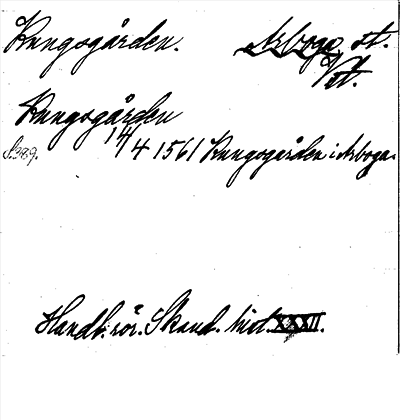 Kungsgården. Arboga st.
Vst.
Kungsgården
S. 389. 14/4 1561 Kungsgården i Arboga.
Handl. rör. Skand. hist. XXXII.